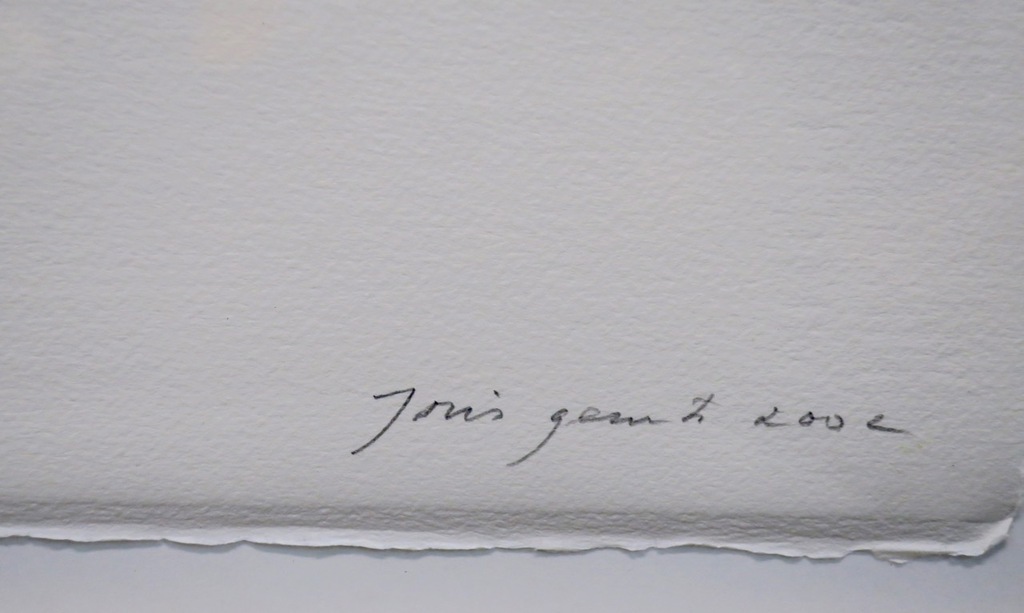 Joris geurts 2002